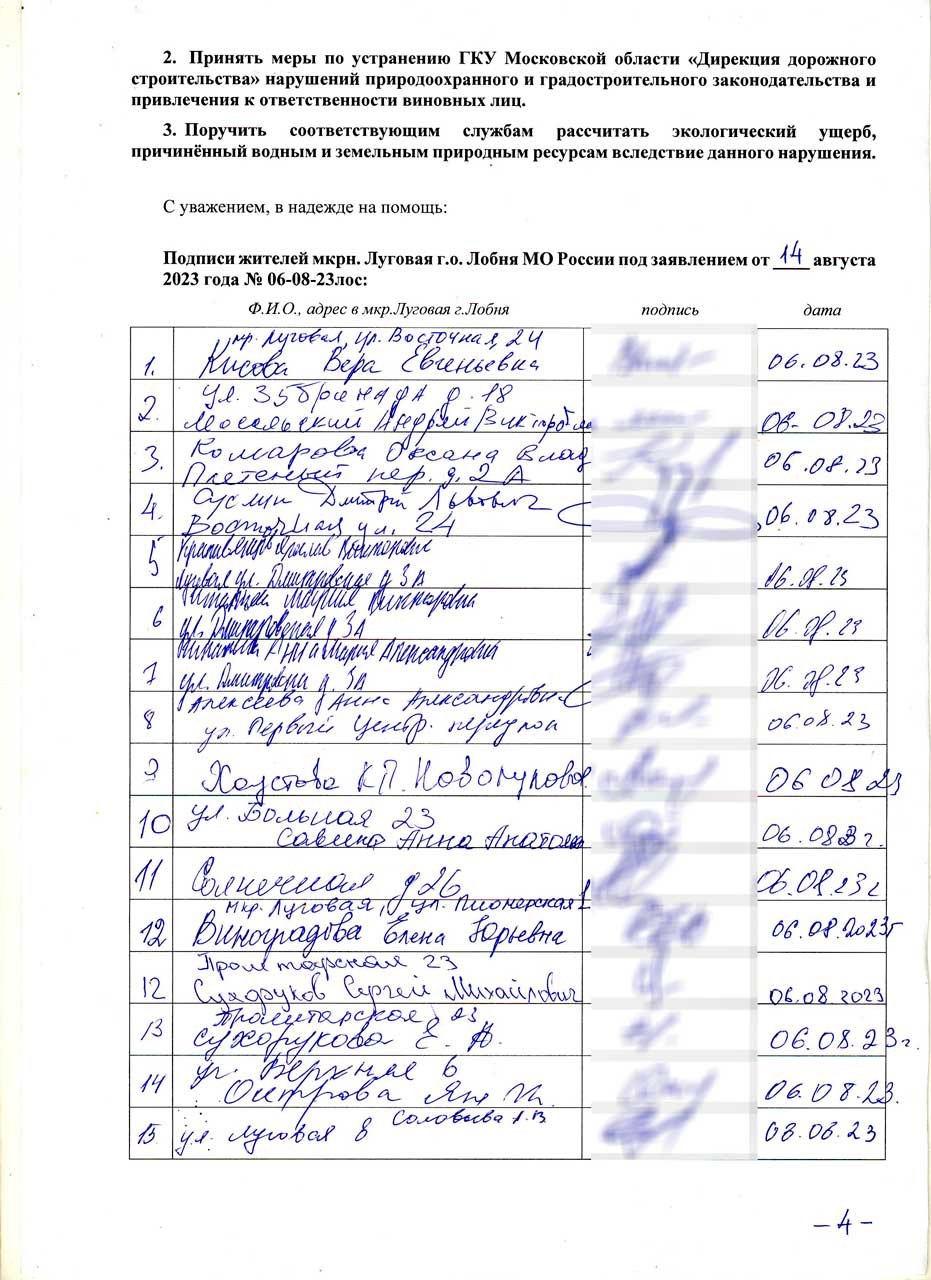 2. Принять меры по устранению ГКУ Московской области «Дирекция дорожного
строительства» нарушений природоохранного и градостроительного законодательства и
привлечения к ответственности виновных лиц.
3. Поручить соответствующим службам рассчитать экологический ущерб,
причинённый водным и земельным природным ресурсам вследствие данного нарушения.
С уважением, в надежде на помощь:
Подписи жителей мкрн. Луговая г.о. Лобня МО России под заявлением от 14 августа
2023 года № 06-08-23лос:
Ф.И.О., адрес в мкр.Луговая г.Лобня подпись дата
мр. Луговая, ул. Восточная, 24
1. Вера Евгеньевна 06.08.23
ул. 35 бригада д. 18
2. Андрей 06-08.23
3. Комарова Оксана Влад 06.08.23
Плетеный пер. д. 2А
4. Суслин Дмитрий Львович 06.08.23
Восточная ул. 24
5 06.08.23
Луговая ул. Дмитровская д 3А
6 Мария Викторовна 06.08.23
ул. Дмитровская д 3А
7 Александровна 06.08.23
ул. д. 3А
8 Алексеева Анна Александровна 06.08.23
ул. Первый Центр. переулок
9 Хаустова К.П. 06 08 23
ул. Большая 23
10 Анна 06.08
11 Солнечная д 26 06.08.23 г
Мкр. Луговая, ул. Пионерская 1
12 Виноградова Елена Юрьевна 06.08.2023г
23
12 Сухоруков Сергей Михайлович 06.08 2023
Пролетарская 23
13 Сухорукова Е. 06.08.23г.
ул. Верхняя 6
14 06.08.23.
15 ул. Луговая 8 Соловьева 08.06.23
– 4 –